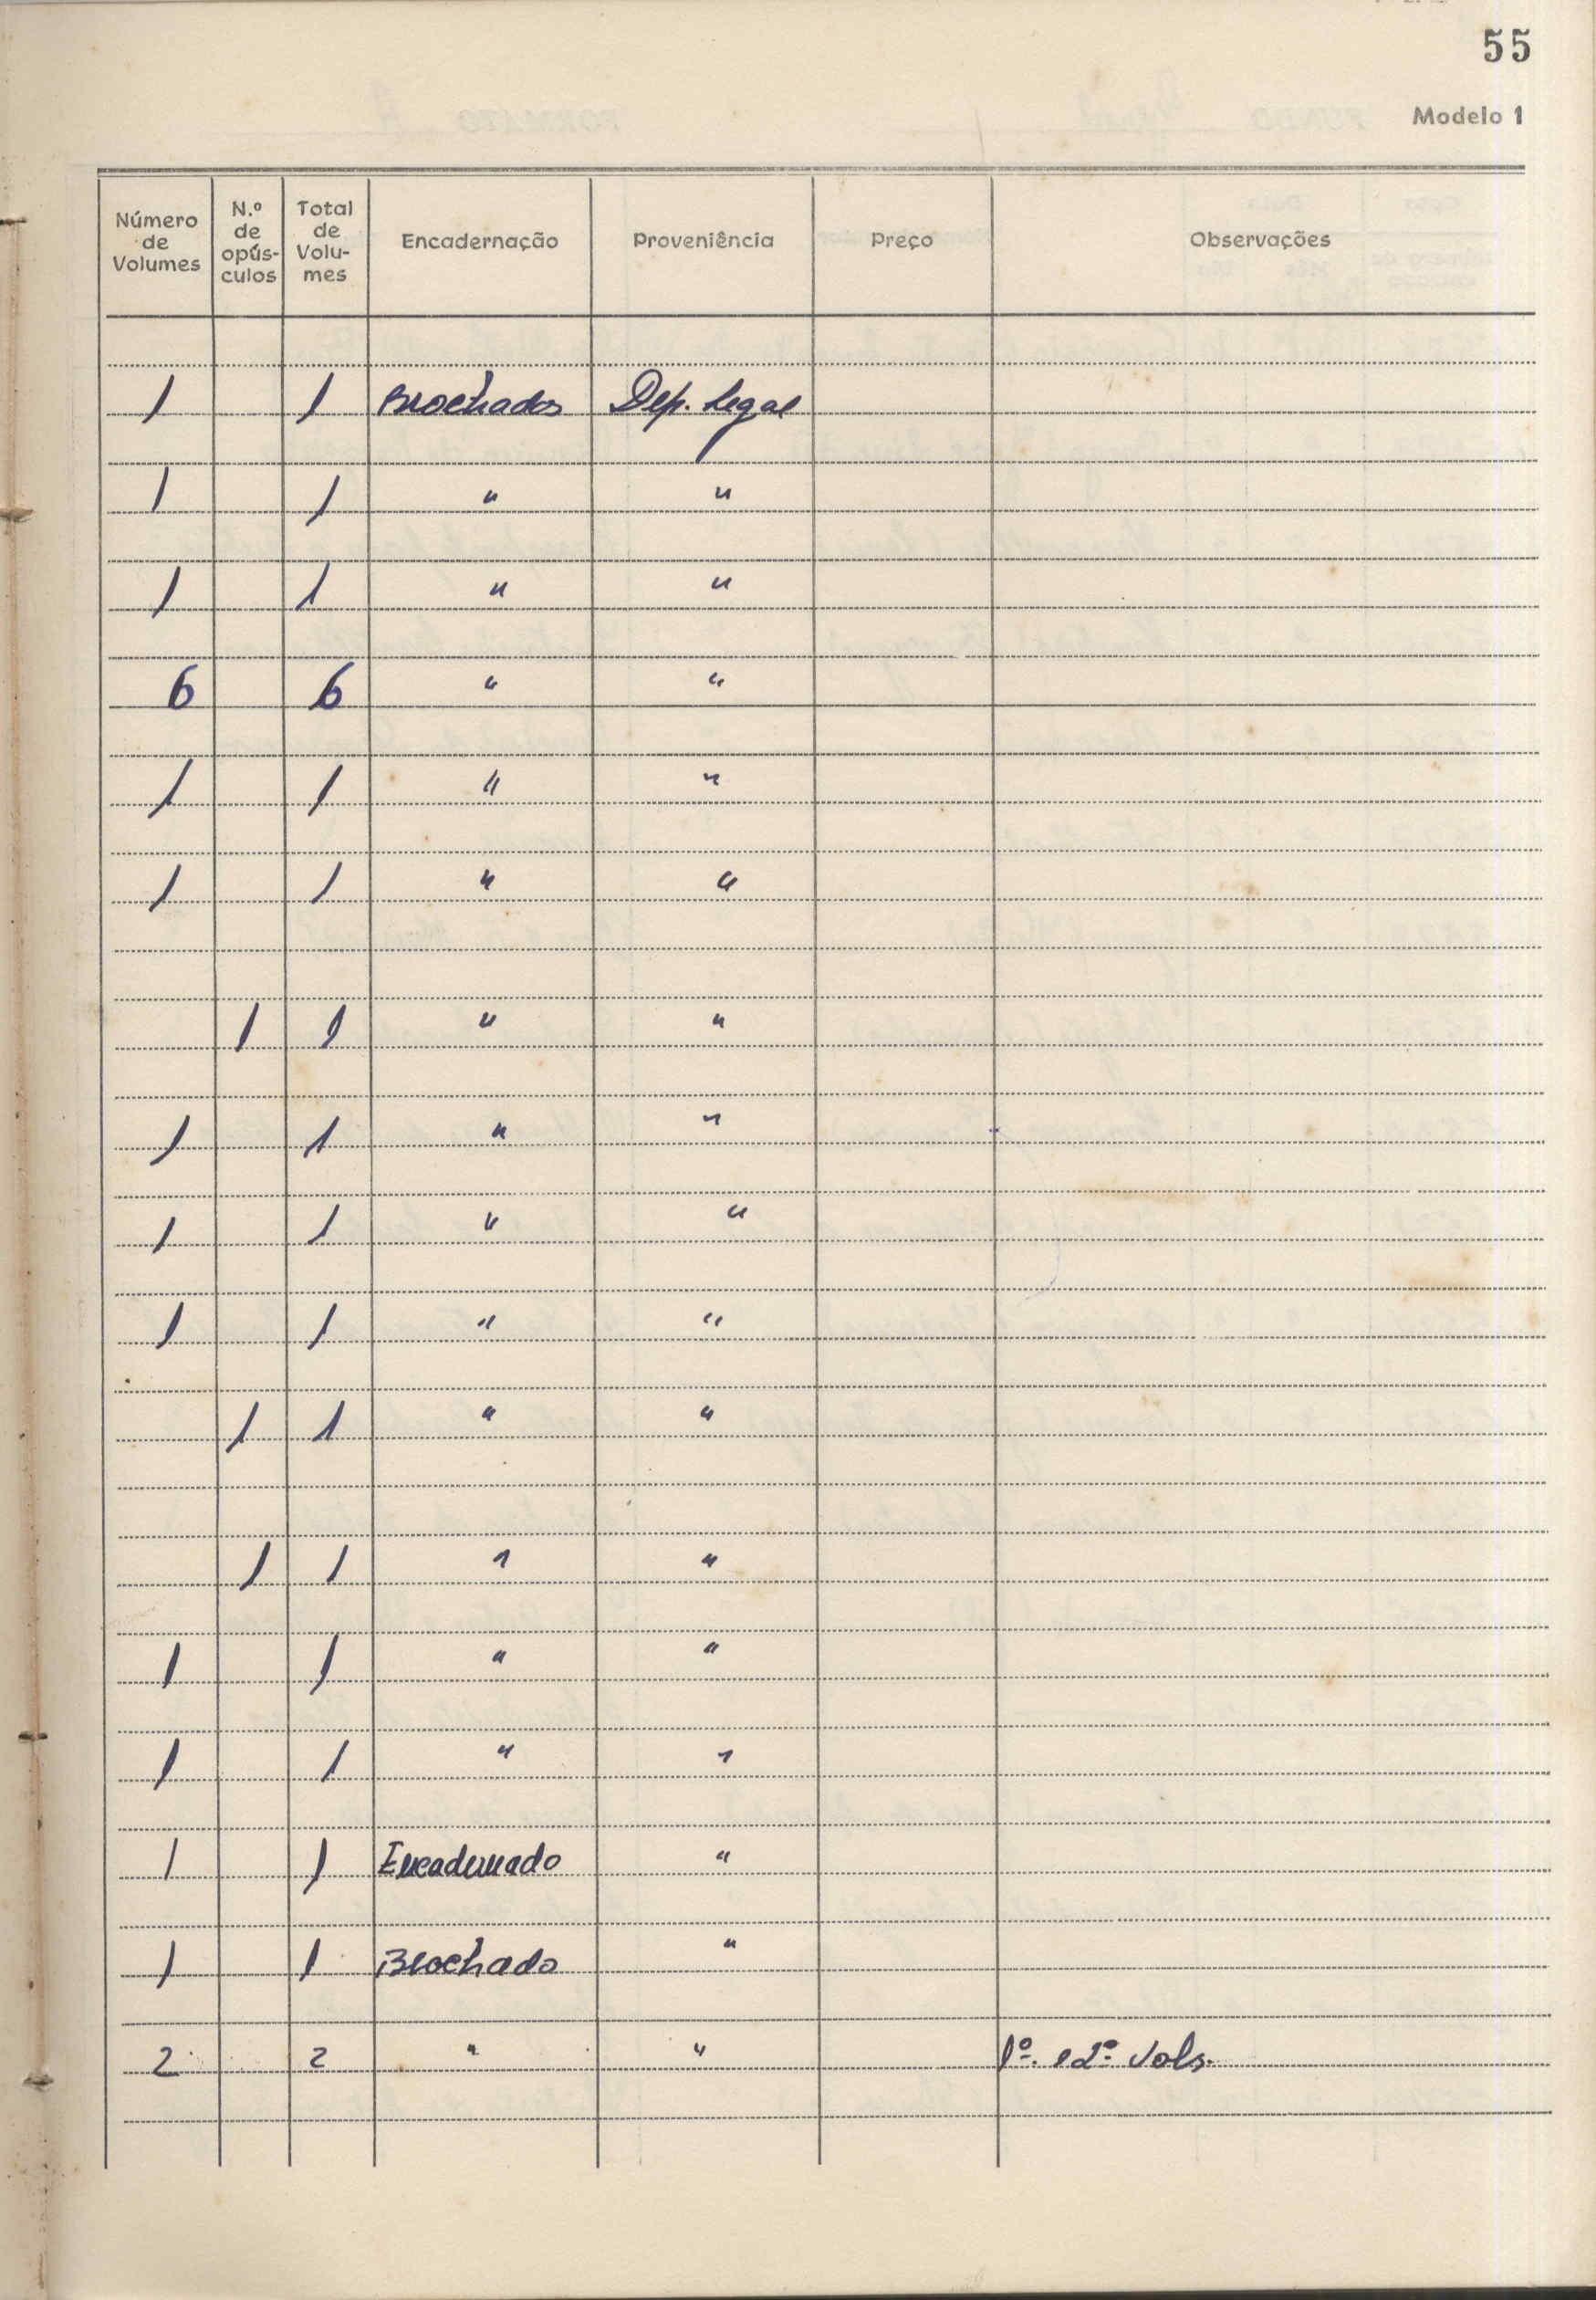 55
Modelo 1
Número de Volumes | N.º de opús-culos | Total de Volu-mes | Encadernação | Proveniência | Preço | Observações
1 | | 1 | Brochados | Dep. Legal
1 | | 1 | " | "
1 | | 1 | " | "
6 | | 6 | " | "
1 | | 1 | " | "
1 | | 1 | " | "
| 1 | 1 | " | "
1 | | 1 | " | "
1 | | 1 | " | "
1 | | 1 | " | "
| 1 | 1 | " | "
| 1 | 1 | " | "
1 | | 1 | " | "
1 | | 1 | " | "
1 | | 1 | Encadernado | "
1 | | 1 | Brochado | "
2 | | 2 | " | " | | 1º. e 2º Vols.